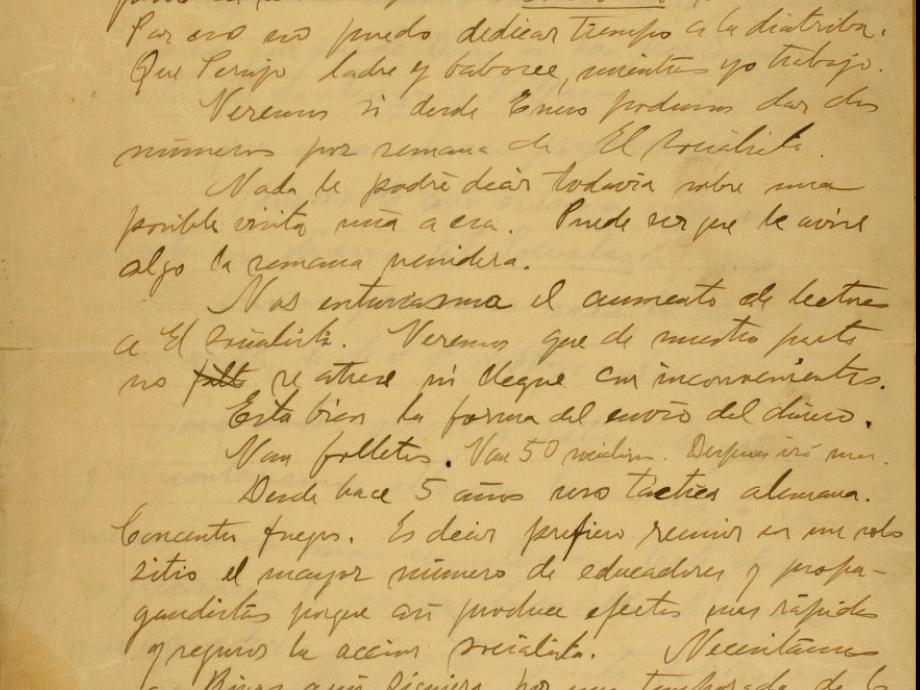 Por eso no puedo dedicar tiempo a la diatriba.
Que ladre y babosee, mientras yo trabajo.
Veremos si desde Enero podemos dar dos
números por semana de El Socialista.
Nada le podré decir todavía sobre una
posible visita mía a esa. Puede ser que le avise
algo la semana venidera.
Nos entusiasma el aumento de lectores
de El Socialista. Veremos que de nuestra parte
no falte se atrase ni llegue con inconvenientes.
Esta bien la forma del envío del dinero.
Van folletos. Van 50 Después irá mas.
Desde hace 5 años uso táctica alemana.
Concentro fuegos. Es decir prefiero reunir en un solo
sitio el mayor número de educadores y propa-
gandistas porque así produce efectos mas rápidos
y seguros la accion socialista. Necesitamos
a aquí siquiera por una temporada de